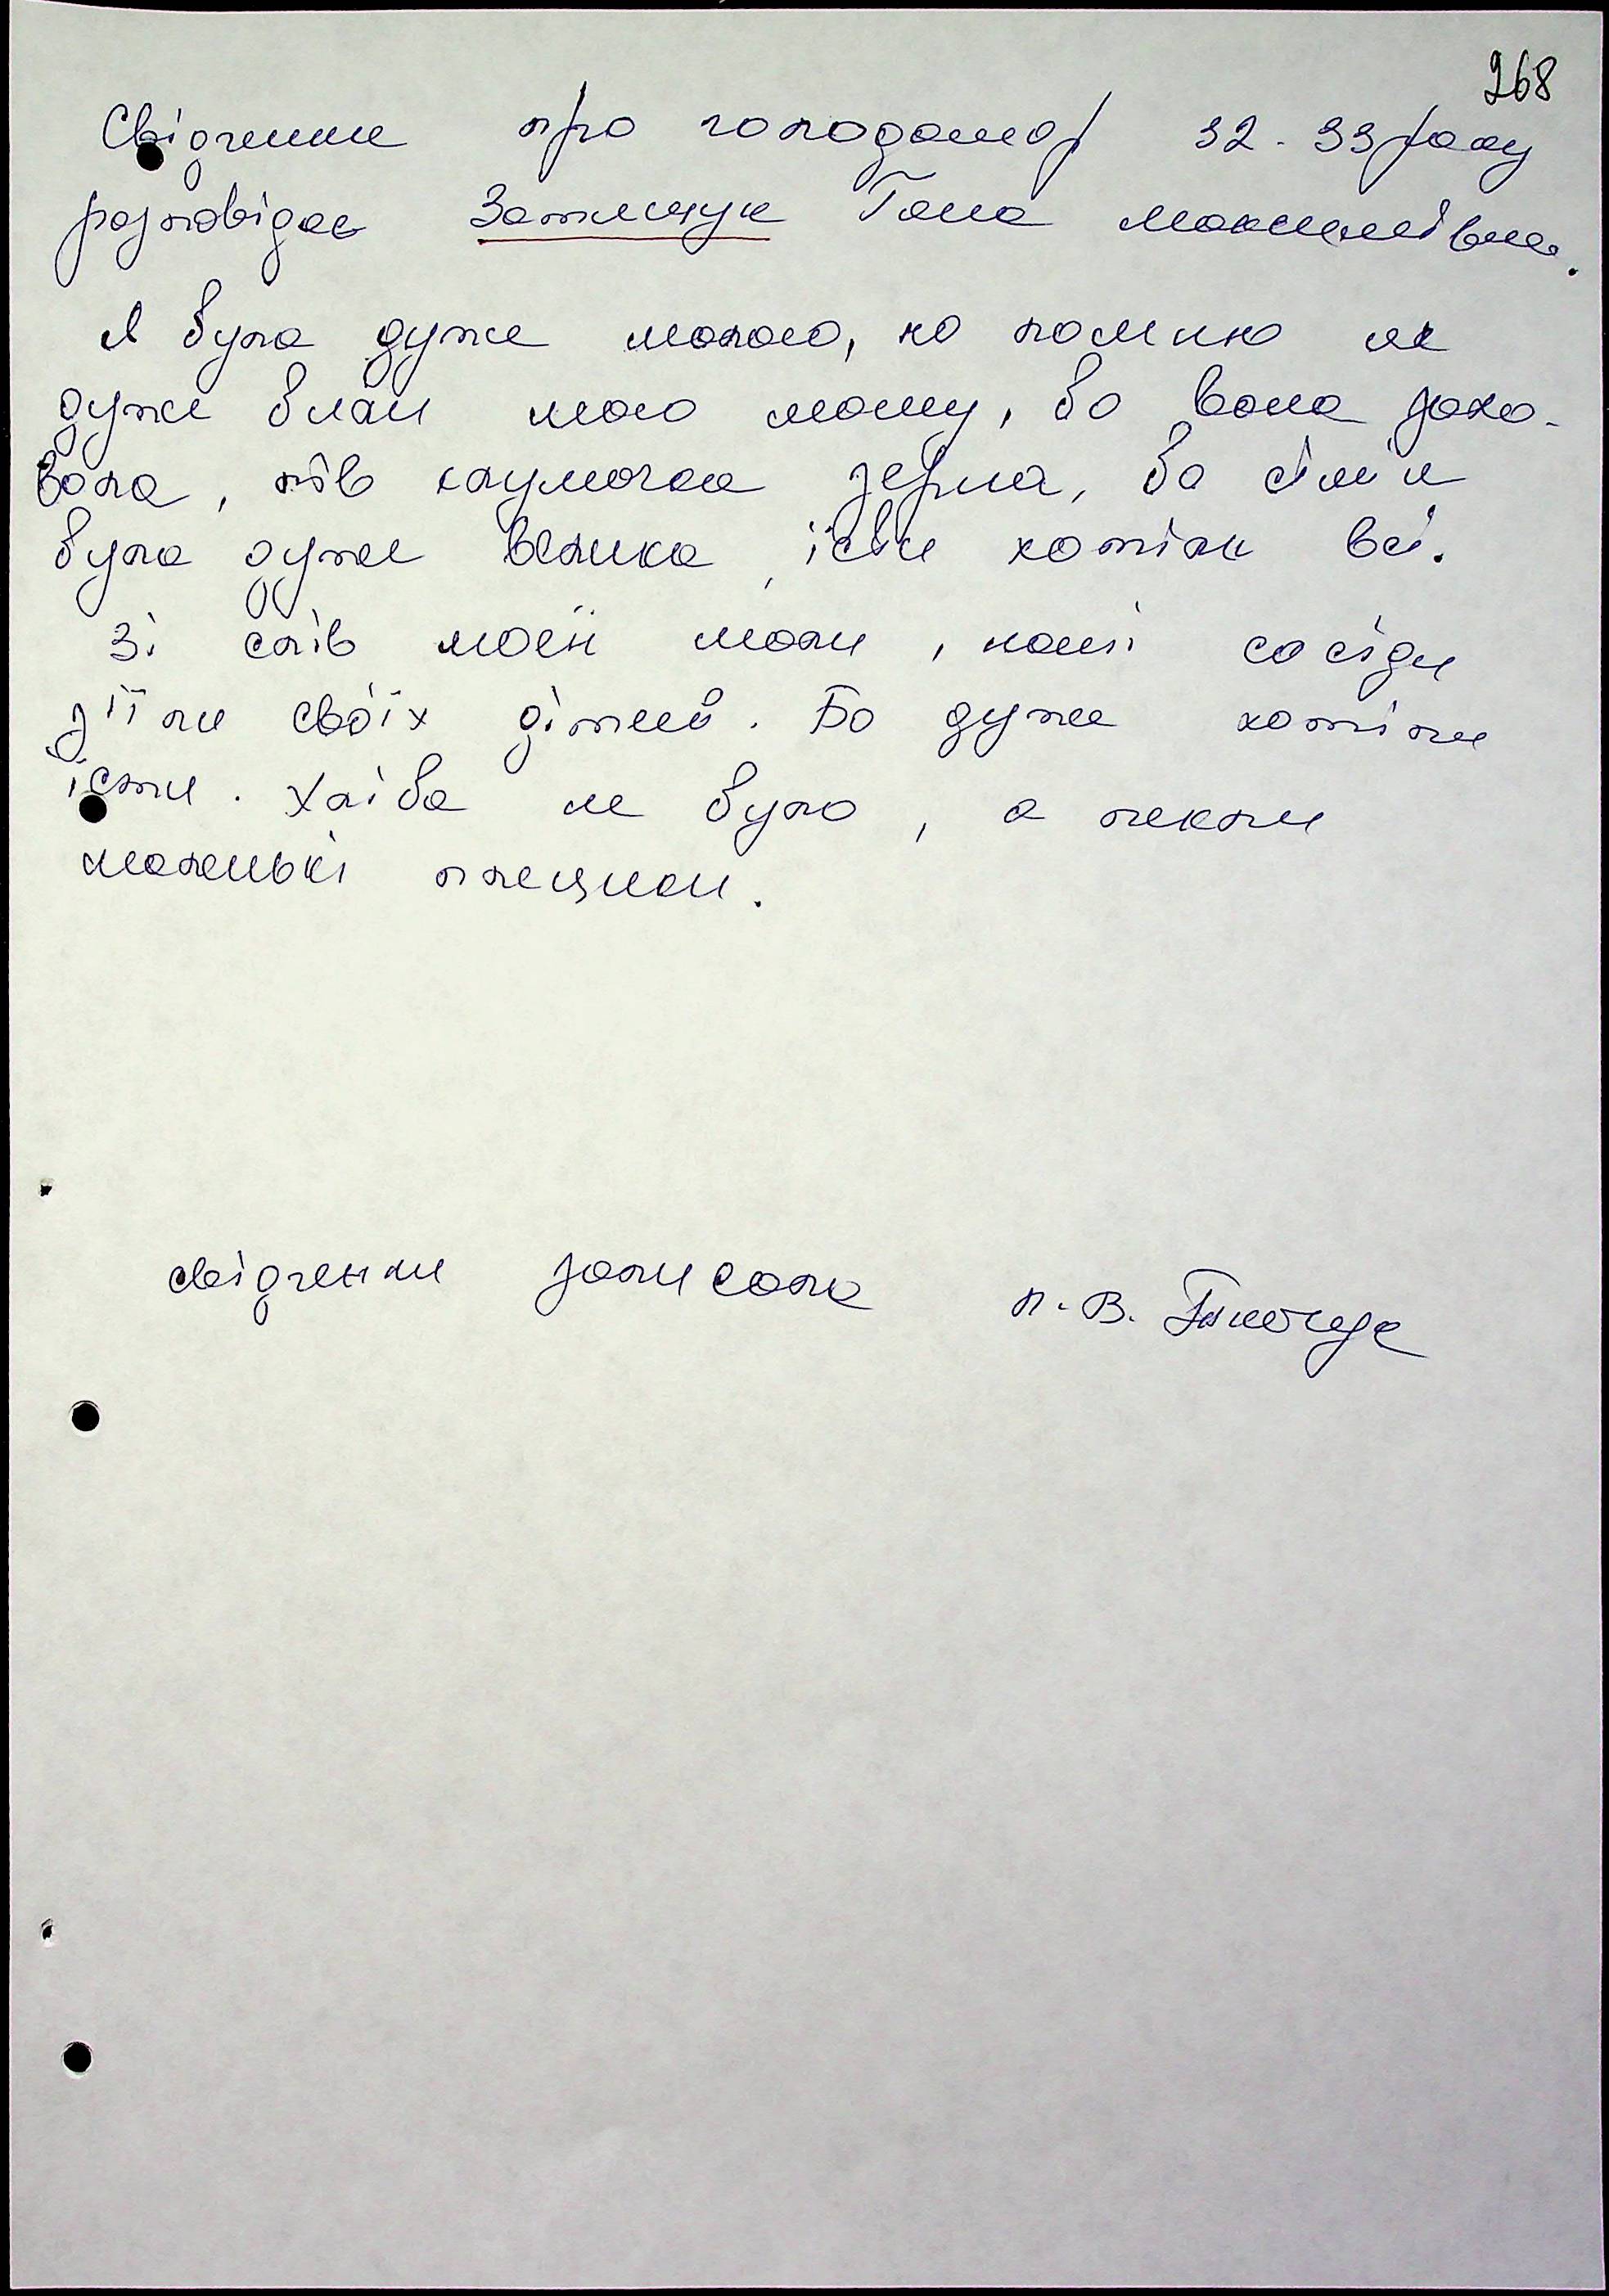 268
Свідчення про голодомор 32-33 року
розповідає Затищук Гана Максимівна.
Я була дуже малою, но помню як
дуже били мою маму, бо вона захо-
вала, пів клумочка зерна, бо сім'я
була дуже велика, їсти хотіли всі.
Зі слів моєї мати, наші сосіди
з'їли своїх дітей. Бо дуже хотіли
їсти. Хліба не було, а пекли
маленькі плецики.
свідчення записала п. В.